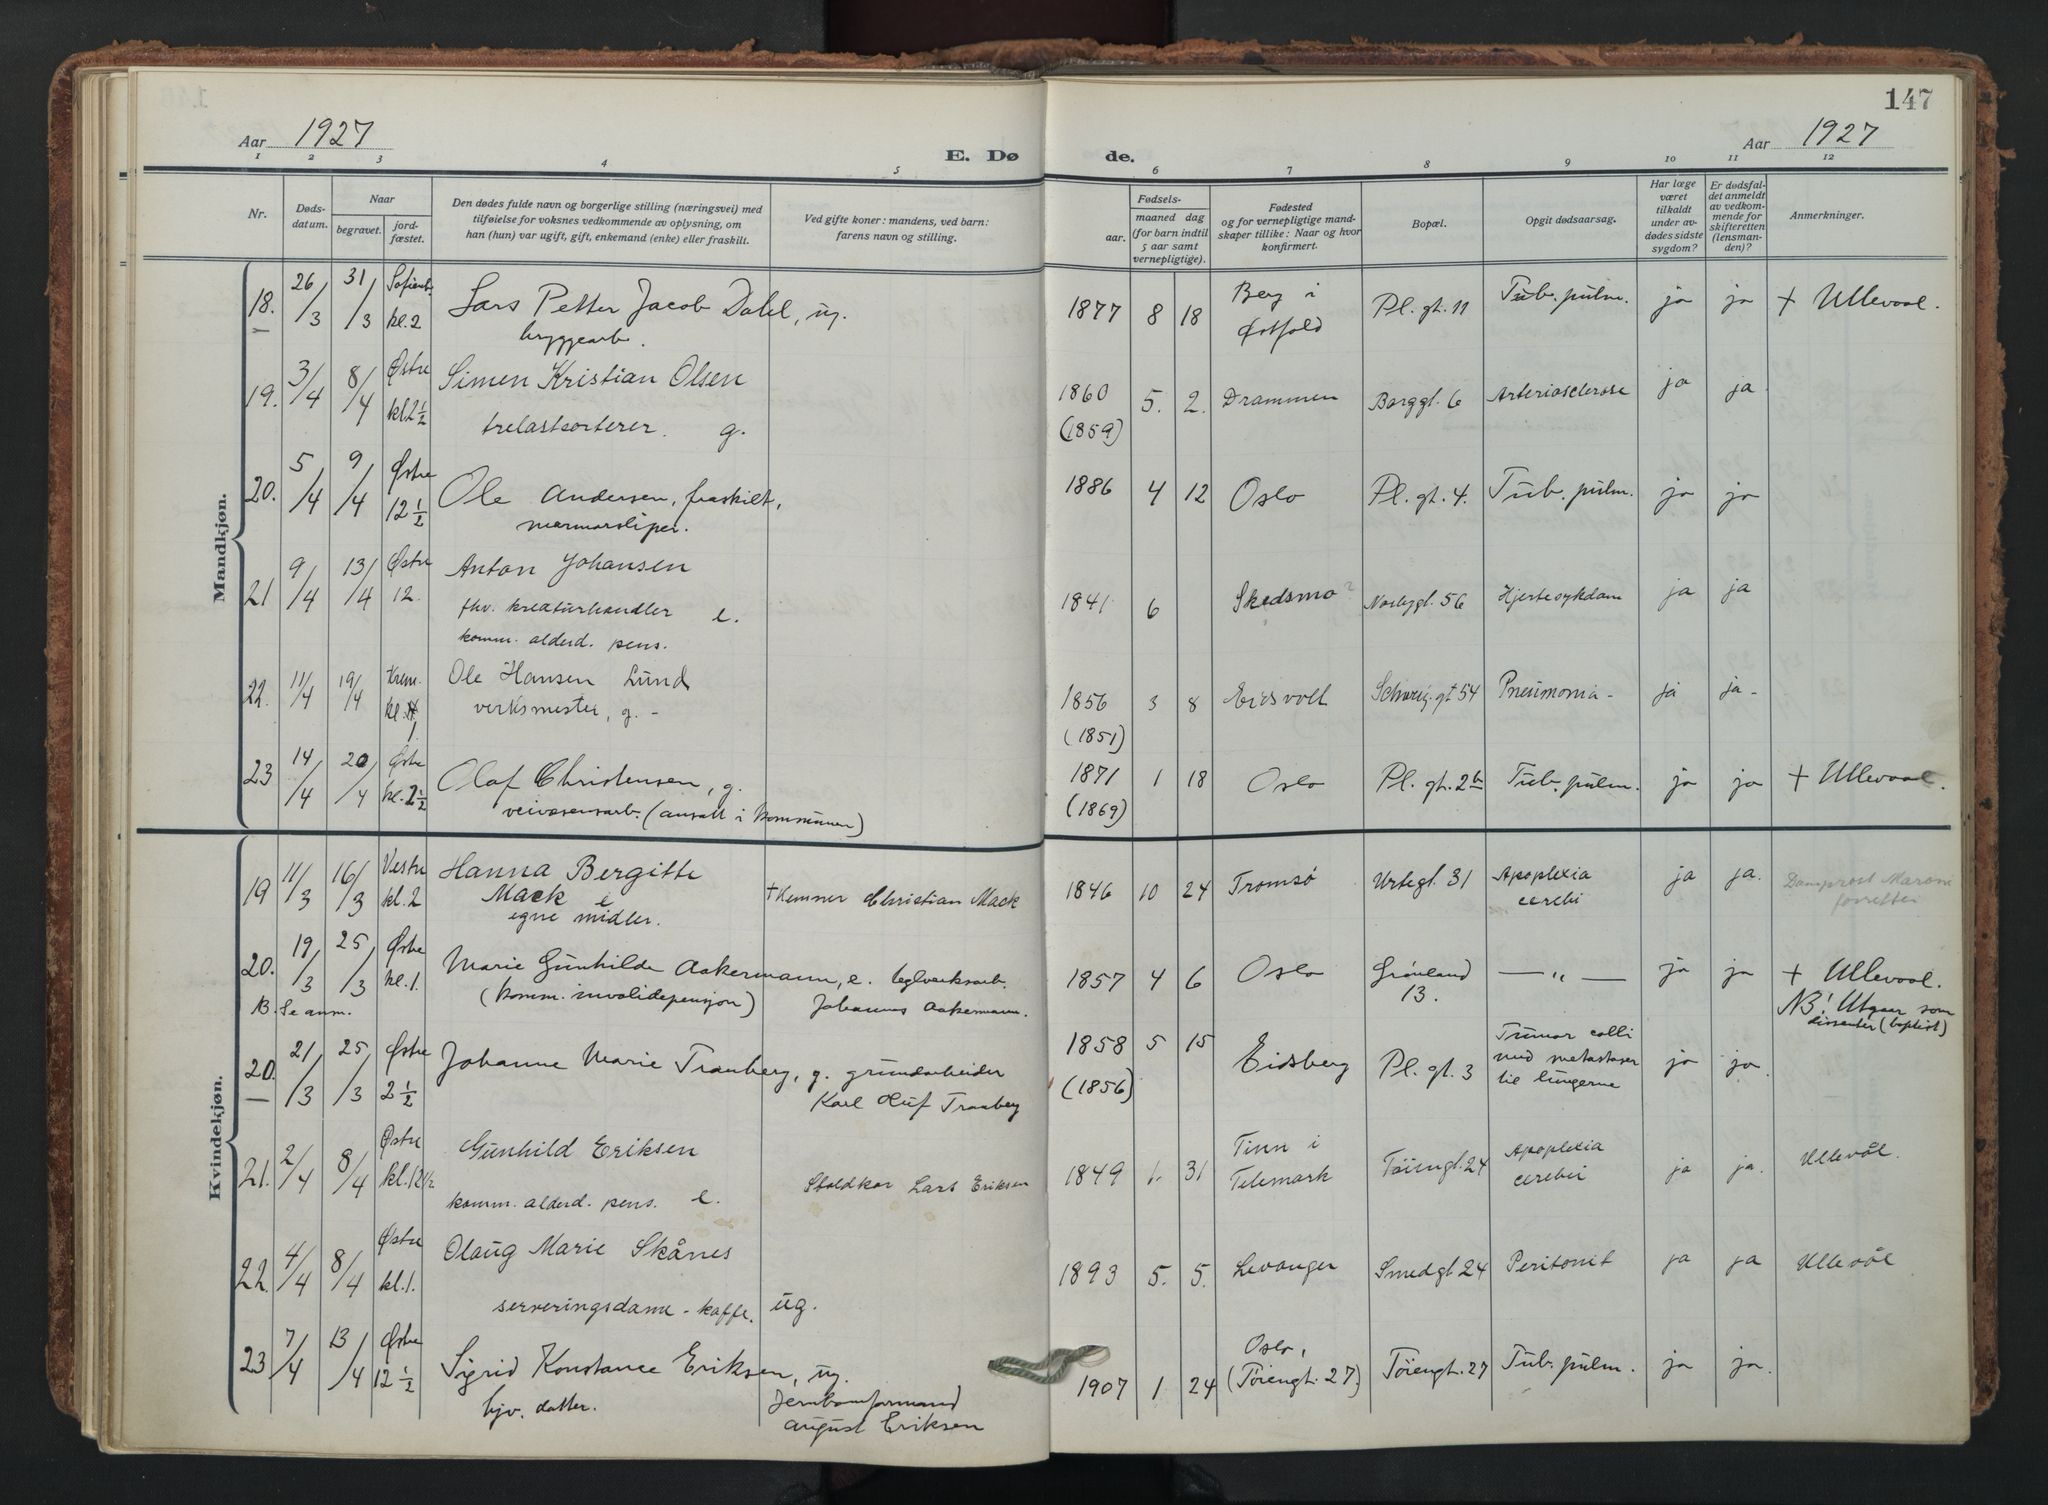 147
Aar 1927
E. Dø
de.
Aar 1927
1 2 3 4 5 6 7 8 9 10 11 12
Nr.
Døds-
datum.
Naar
begravet.
jord-
fæstet.
Den dødes fulde navn og borgerlige stilling (næringsvei) med
tilføielse for voksnes vedkommende av oplysning, om
han (hun) var ugift, gift, enkemand (enke) eller fraskilt.
Ved gifte koner: mandens, ved barn:
farens navn og stilling.
Fødsels-
aar.
maaned dag
(for barn indtil
5 aar samt
vernepligtige).
Fødested
og for vernepligtige mand-
skaper tillike: Naar og hvor
konfirmert.
Bopæl.
Opgit dødsaarsag.
Har læge
været
tilkaldt
under av-
dødes sidste
sygdom?
Er dødsfal-
det anmeldt
av vedkom-
mende for
skifteretten
(lensman-
den)?
Anmerkninger.
Mandkjøn.
18. 26/3 31/3 Sofienb. kl. 2
Lars Petter Jacob Dahl, ug.
bryggearb.
1877 8 18 Berg i
Østfold
Pl. gt. 11 Tub. pulm. ja ja + Ullevaal.
19. 3/4 8/4 Østre kl. 2 1/2
Simen Kristian Olsen
trelastsorterer. g.
1860
(1859)
5. 2. Drammen Borggt. 6 Arteriosclerose ja ja.
20. 5/4 9/4 Østre 12 1/2
Ole Andersen, fraskilt,
marmorsliper.
1886 4 12 Oslo Pl. gt. 4. Tub. pulm. ja ja
21 9/4 13/4 Østre 12.
Anton Johansen
fhv. kreaturhandler e.
komm. alderd. pens.
1841 6 Skedsmo? Norbygt. 56 Hjertesykdom ja ja
22. 11/4 19/4 Krem. kl. 1
Ole Hansen Lund
verksmester, g. -
1856
(1851)
3 8 Eidsvoll Schweig. gt 54 Pneumonia - ja ja -
23 14/4 20/4 Østre kl. 2 1/2
Olaf Christensen, g.
veivesensarb. (ansatt i kommunen)
1871
(1869)
1 18 Oslo Pl. gt. 2b Tub. pulm. ja ja + Ullevaal.
Kvindekjøn.
19 11/3 16/3 Vestre kl. 2
Hanna Bergitte
Mack e
egne midler.
+ Kemner Christian Mack
1846 10 24 Tromsø Urtegt. 31 Apoplexia
cerebri
ja ja. Domprost Maroni
forretter
20. 19/3 25/3 Østre kl. 1.
Marie Gunhilde Aakermann, e. teglverksarb.
(komm. invalidepensjon) Johannes Aakermann.
B. Se anm.
1857 4 6 Oslo Grønland
13.
— „ — ja ja + Ullevaal.
NB! Utgaar som
dissenter (baptist)
20. 21/3 25/3 Østre 2 1/2
Johanne Marie Tranberg, g. grundarbeider
Karl Oluf Tranberg
1858
(1856)
5 15 Eidsberg Pl. gt. 3 Tumor colli
med metastaser
til lungerne
ja ja.
21. 2/4 8/4 Østre kl. 12 1/2
Gunhild Eriksen
komm. alderd. pens. e.
Lars Eriksen
1849 1. 31 Tinn i
Telemark
Tøiengt. 24 Apoplexia
cerebri
ja ja. Ullevål.
22. 4/4 8/4 Østre kl. 1.
Olaug Marie Skånes
serveringsdame - kaffe. ug.
1893 5. 5. Levanger Smedgt 24 Peritonit ja ja Ullevål
23 7/4 13/4 Østre 12 1/2
Sigrid Konstance Eriksen, ug.
hjv. datter.
Jernbaneformand
August Eriksen
1907 1 24 Oslo,
(Tøiengt. 27)
Tøiengt. 27 Tub. pulm. ja ja.